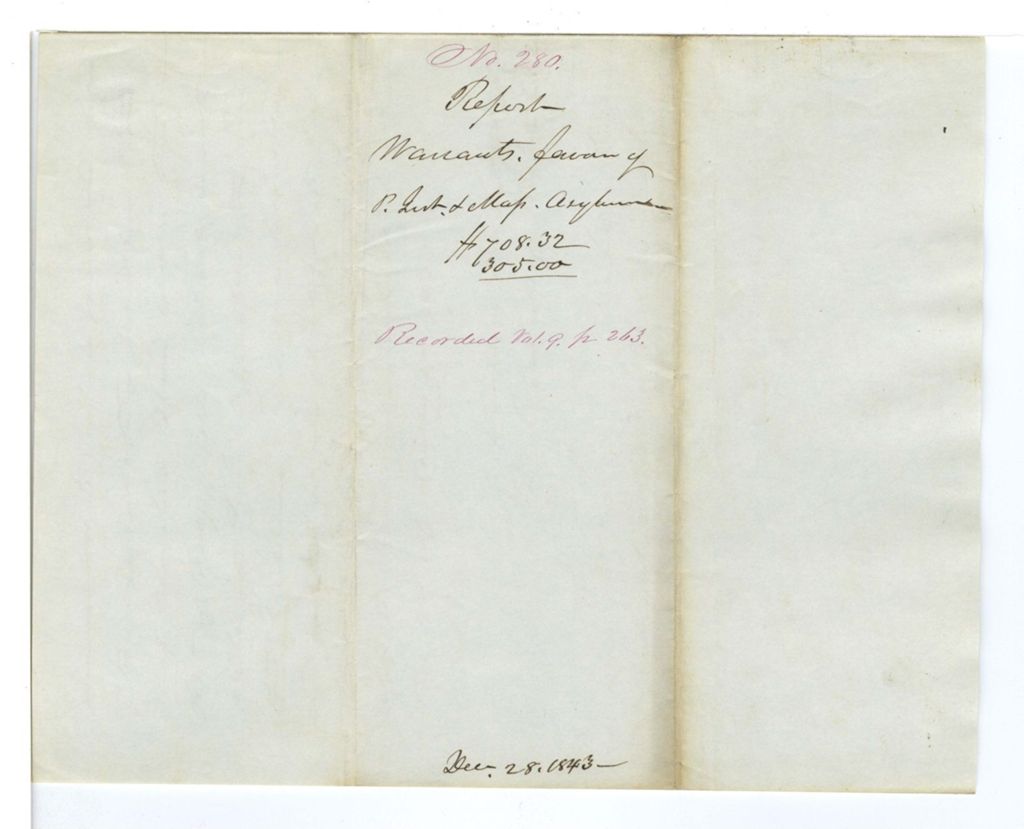 No. 280.
Report
Warrants. favour of
P. Inst. & Mass. Asylum
$708.32
305.00
Recorded Vol. 9. p 263.
Dec. 28. 1843